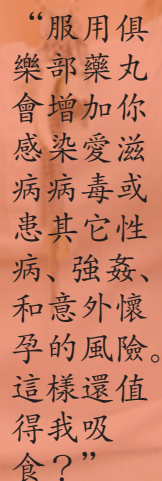 “服用俱
樂部藥丸
會增加你
感染愛滋
病病毒或
患其它性
病、強姦、
和意外懷
孕的風險。
這樣還值
得我吸
食？”